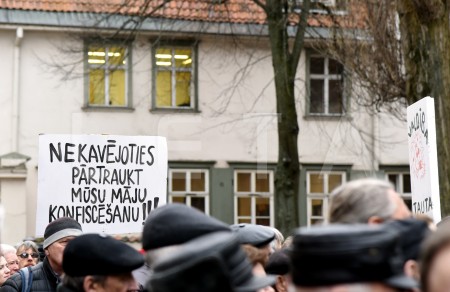 NEKAVĒJOTIES
PĀRTRAUKT
MŪSU MĀJU
KONFISCĒŠANU!!!
TAUTA